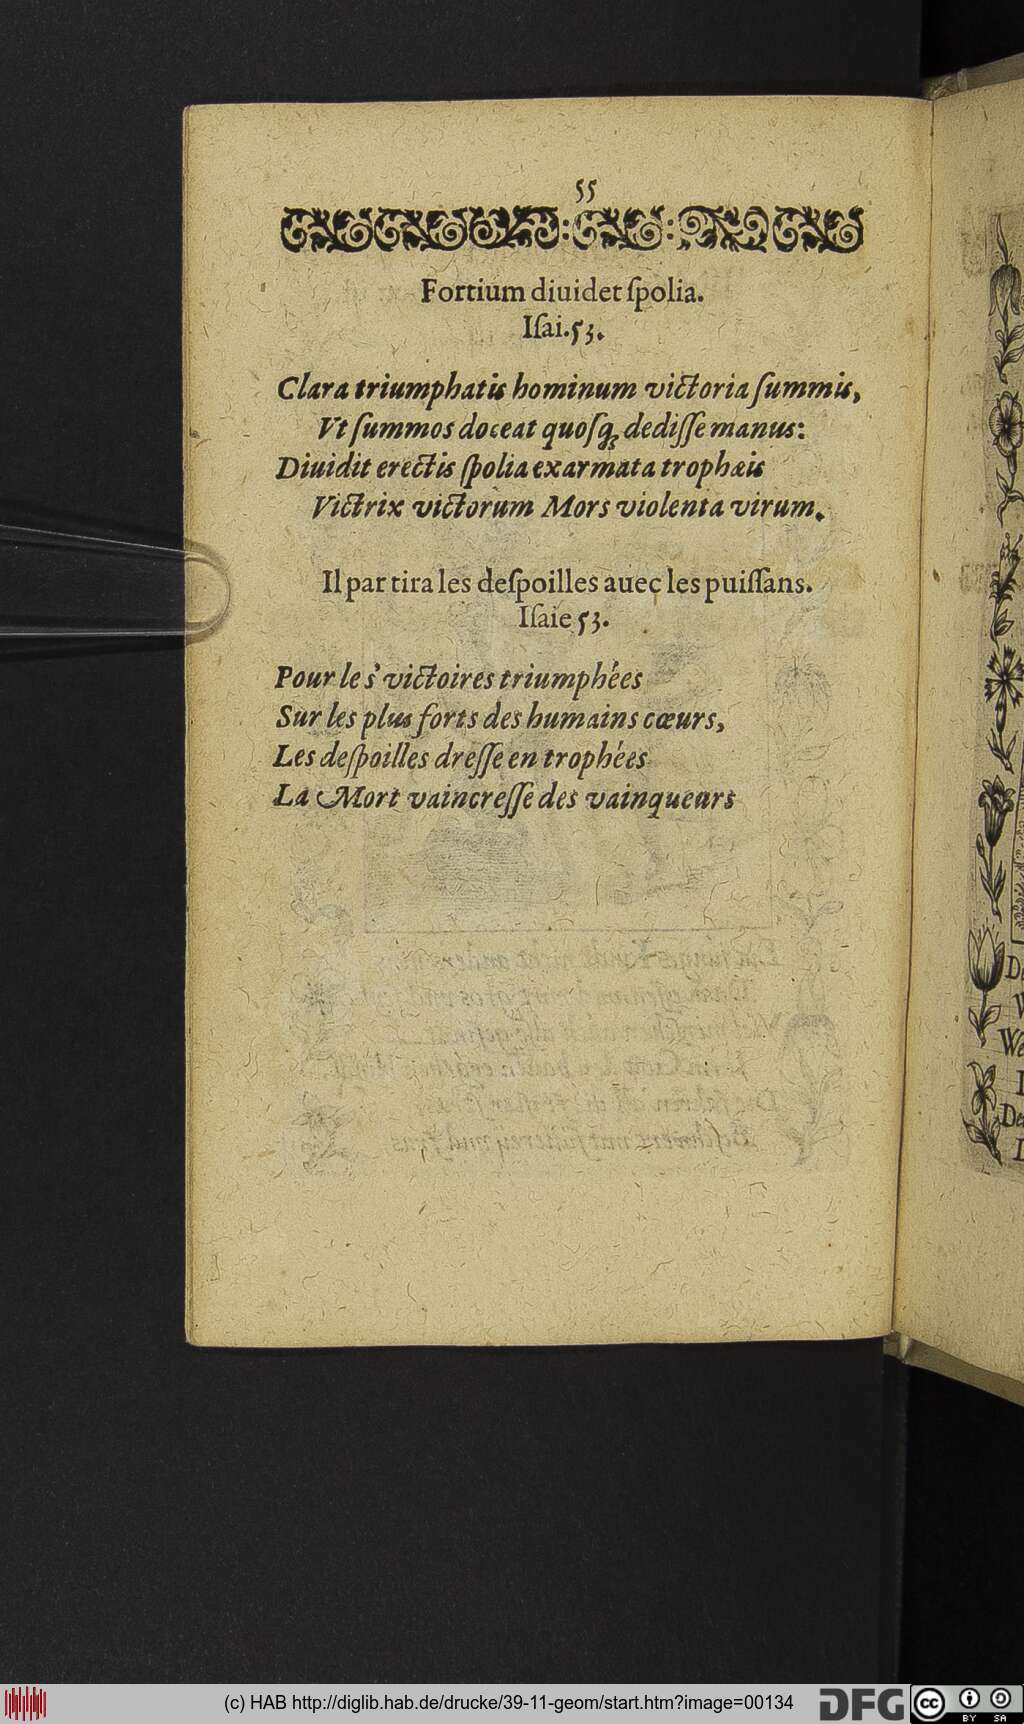 55
Fortium diuidet ſpolia.
Iſai.53.
Clara triumphatis hominum victoria ſummis,
Vt ſummos doceat quoſq; dediſſe manus:
Diuidit erectis ſpolia exarmata trophæis
Victrix victorum Mors violenta virum.
Il partira les deſpoilles auec les puiſſans.
Iſaie 53.
Pour les victoires triumphées
Sur les plus forts des humains cœurs,
Les deſpoilles dreſſe en trophées
La Mort vaincreſſe des vainqueurs
(c) HAB http://diglib.hab.de/drucke/39-11-geom/start.htm?image=00134
DFG
cc
BY SA